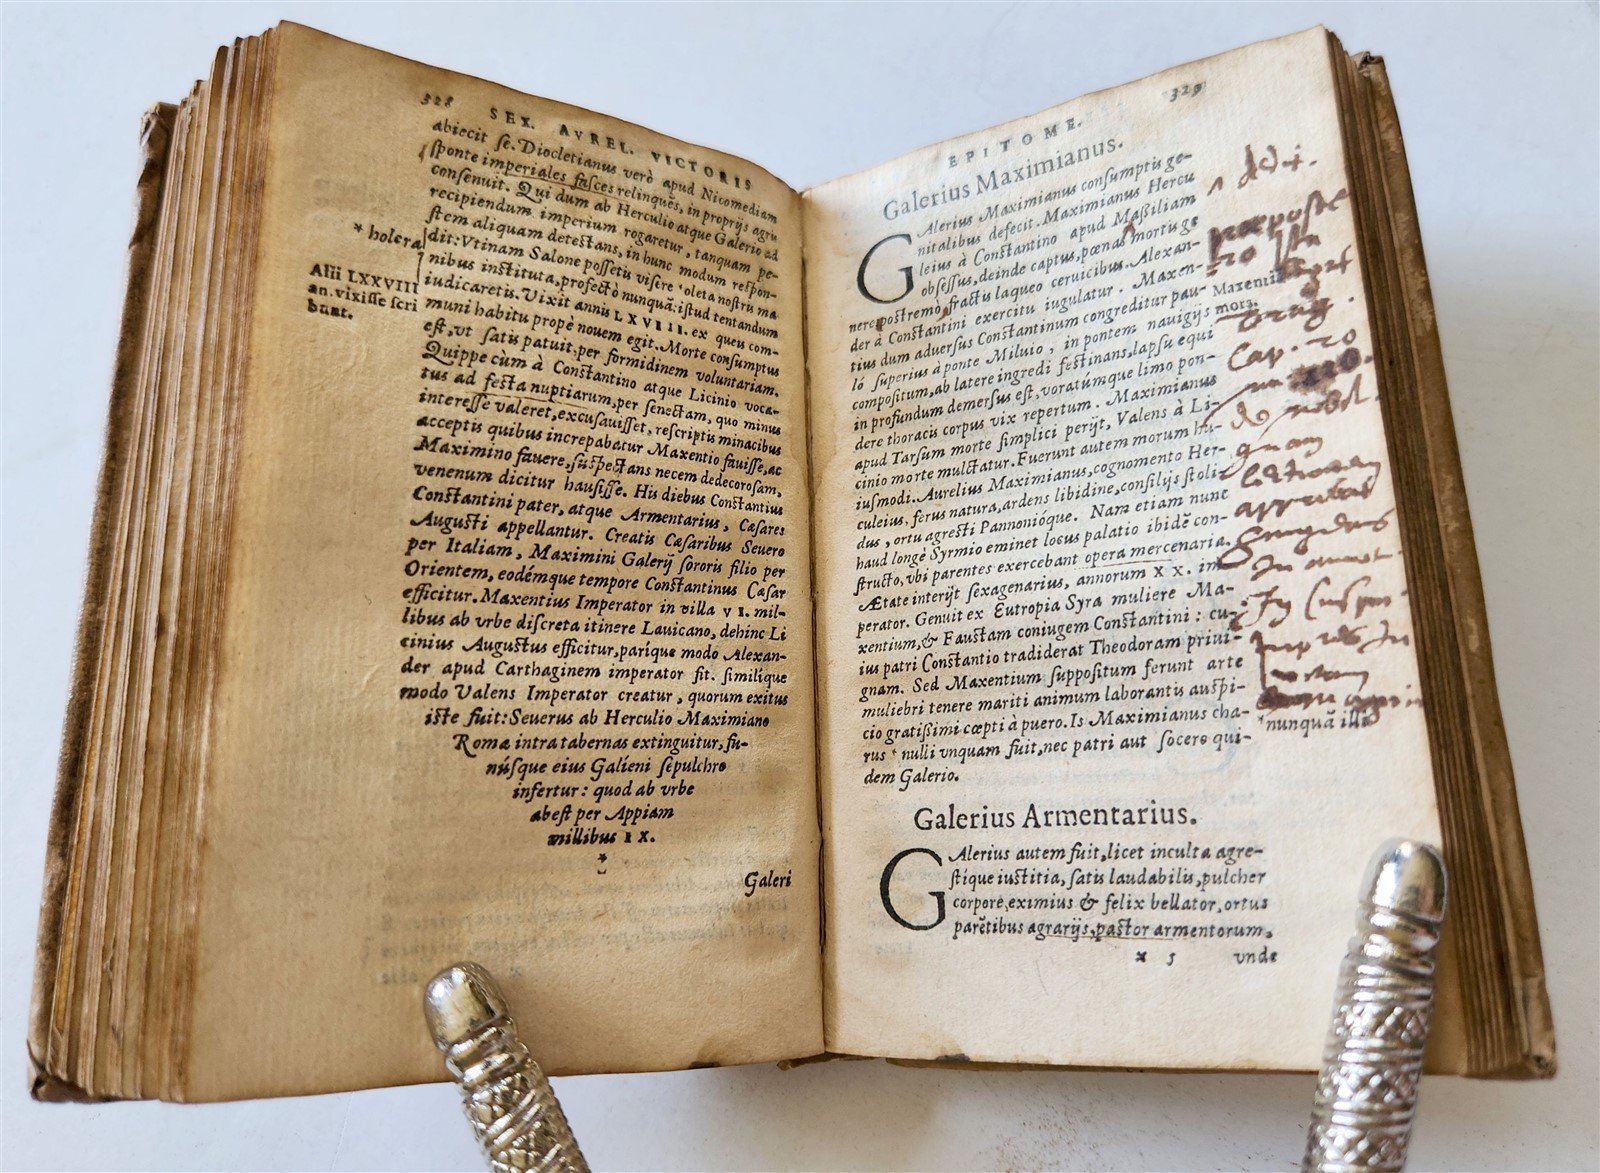 328
SEX. AVREL. VICTORIS
abiecit se. Diocletianus verò apud Nicomediam
sponte imperiales fasces relinquēs, in proprijs agris
consenuit. Qui dum ab Herculio atque Galerio ad
recipiendum imperium rogaretur, tanquam pe-
stem aliquam detestans, in hunc modum respon-
dit: Vtinam Salonæ possetis visere *oleta nostris ma
nibus instituta, profectò nunquā istud tentandum
iudicaretis. Vixit annis LXVIII. ex queis com-
muni habitu propè nouem egit. Morte consumptus
est, vt satis patuit, per formidinem voluntariam.
Quippe cùm à Constantino atque Licinio voca-
tus ad festa nuptiarum, per senectam, quo minus
interesse valeret, excusauisset, rescriptis minacibus
acceptis quibus increpabatur Maxentio fauisse, ac
Maximino fauere, suspectans necem dedecorosam,
venenum dicitur hausisse. His diebus Constantius
Constantini pater, atque Armentarius, Cæsares
Augusti appellantur. Creatis Cæsaribus Seuero
per Italiam, Maximini Galerij sororis filio per
Orientem, eodémque tempore Constantinus Cæsar
efficitur. Maxentius Imperator in villa VI. mil-
libus ab vrbe discreta itinere Lauicano, dehinc Li
cinius Augustus efficitur, paríque modo Alexan-
der apud Carthaginem imperator fit. similíque
modo Valens Imperator creatur, quorum exitus
iste fuit: Seuerus ab Herculio Maximiano
Romæ intra tabernas extinguitur, fu-
núsque eius Galieni sepulchro
infertur: quod ab vrbe
abest per Appiam
millibus IX.
*
Galeri
* holera
Alii LXXVIII
an. vixisse scri
bunt.
329
EPITOME.
Galerius Maximianus.
GAlerius Maximianus consumptis ge-
nitalibus defecit. Maximianus Hercu
leius à Constantino apud Massiliam
obsessus, deinde captus, pœnas mortis ge
nere postremo, fractis laqueo ceruicibus. Alexan-
der à Constantini exercitu iugulatur. Maxen-
tius dum aduersus Constantinum congreditur pau-
lò superius à ponte Miluio, in pontem nauigijs
compositum, ab latere ingredi festinans, lapsu equi
in profundum demersus est, voratúmque limo pon-
dere thoracis corpus vix repertum. Maximianus
apud Tarsum morte simplici perijt, Valens à Li-
cinio morte mulctatur. Fuerunt autem morum hu-
iusmodi. Aurelius Maximianus, cognomento Her-
culeius, ferus natura, ardens libidine, consilijs stoli-
dus, ortu agresti Pannonióque. Nam etiam nunc
haud longè Syrmio eminet locus palatio ibidē con-
structo, vbi parentes exercebant opera mercenaria.
Ætate interijt sexagenarius, annorum XX. im-
perator. Genuit ex Eutropia Syra muliere Ma-
xentium, & Faustam coniugem Constantini: cu-
ius patri Constantio tradiderat Theodoram priui-
gnam. Sed Maxentium suppositum ferunt arte
muliebri tenere mariti animum laborantis auspi-
cio gratissimi cœpti à puero. Is Maximianus cha-
rus *nulli vnquam fuit, nec patri aut socero qui-
dem Galerio.
Maxentii
mors.
*nunquā illa
Galerius Armentarius.
GAlerius autem fuit, licet inculta agre-
stique iustitia, satis laudabilis, pulcher
corpore, eximius & felix bellator, ortus
parētibus agrarijs, pastor armentorum,
x 5
vnde